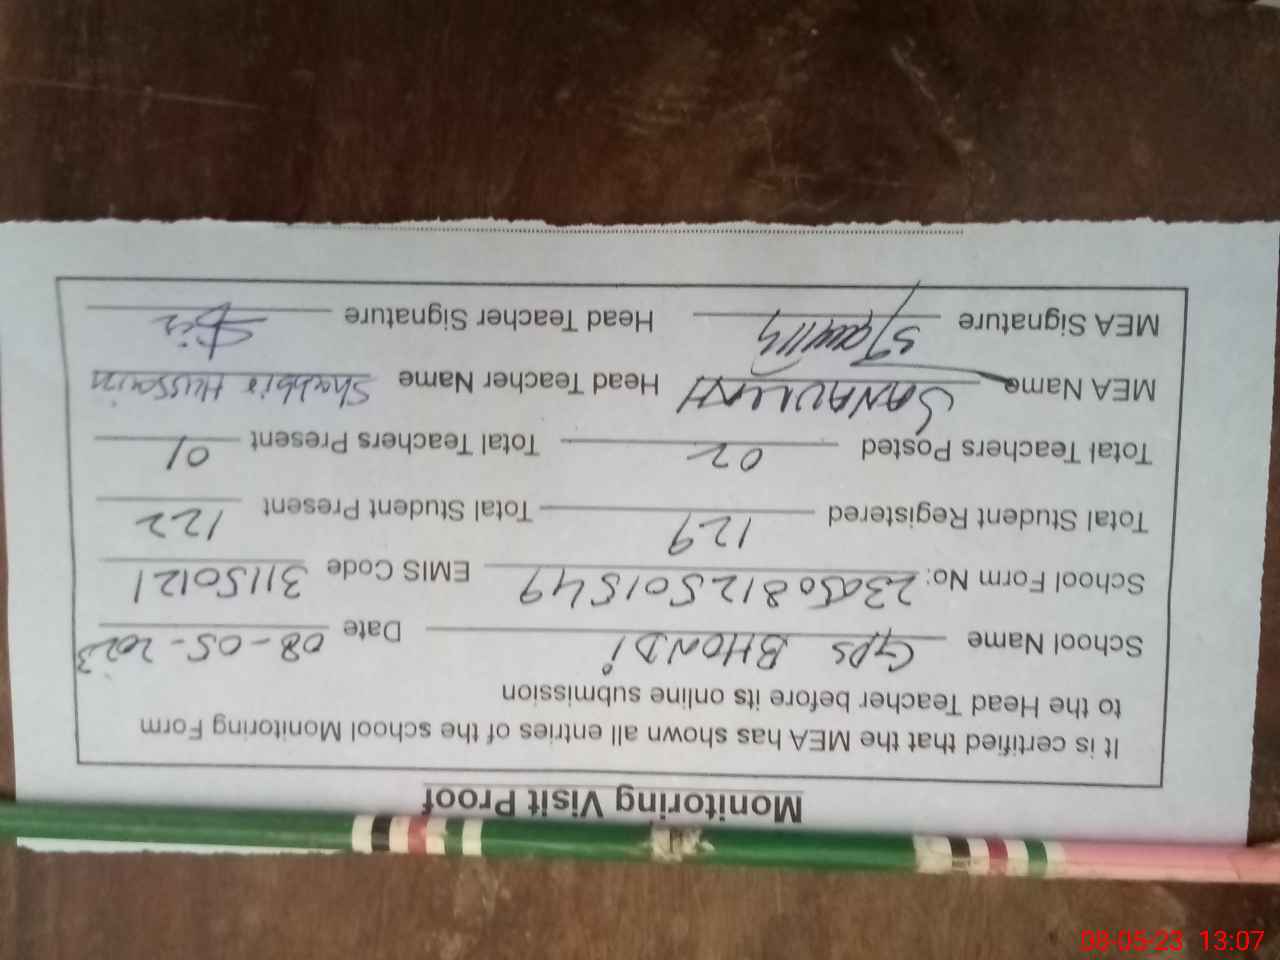 Monitoring Visit Proof
It is certified that the MEA has shown all entries of the school Monitoring Form
to the Head Teacher before its online submission
School Name GPS BHONDi Date 08-05-2023
School Form No: 23050812501549 EMIS Code 31150121
Total Student Registered 129 Total Student Present 122
Total Teachers Posted 02 Total Teachers Present 01
MEA Name SANAULLAH Head Teacher Name Shabbir Hussain
MEA Signature Head Teacher Signature
08-05-23 13:07